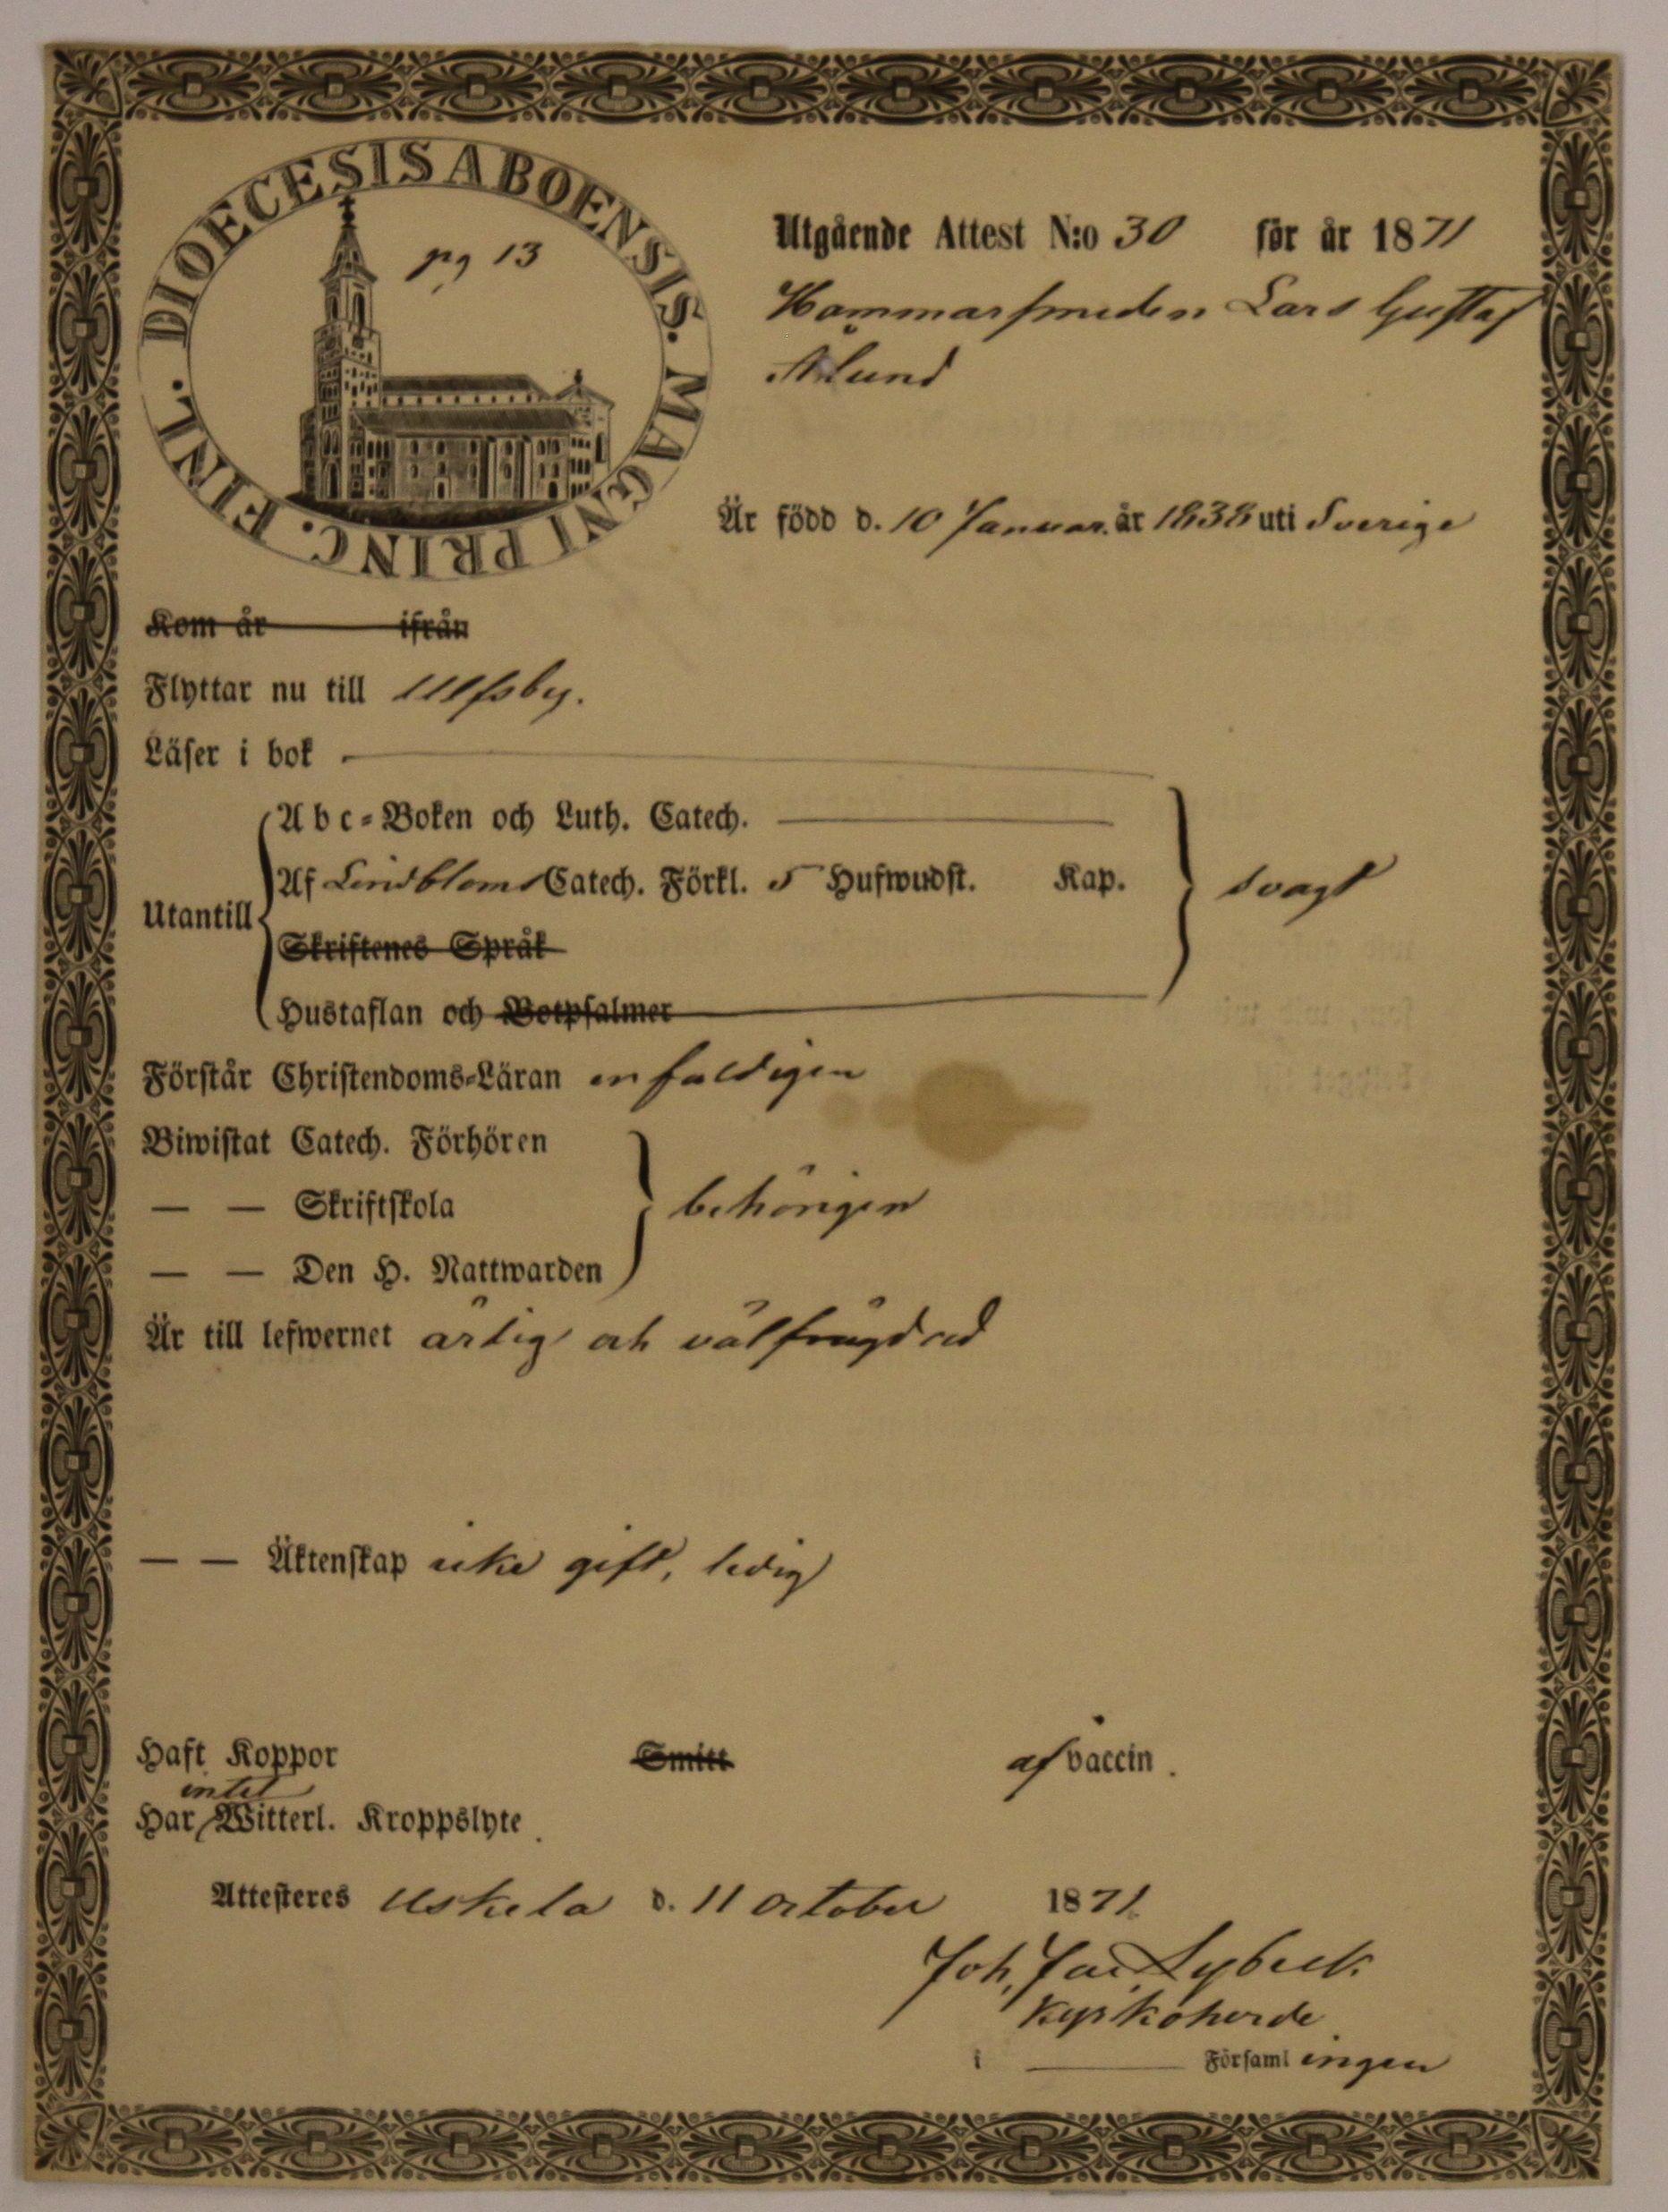 DIOECESIS ABOENSIS. MAGNI PRINC. FINL.
pg 13
Utgående Attest N:o 30 för år 1871
Hammarsmeden Lars Gustaf
Ålund
Är född d. 10 Januar. år 1838 uti Sverige
Kom år ifrån
Flyttar nu till Ulfsby.
Läser i bok
Abc-Boken och Luth. Catech.
Af Lindbloms Catech. Förkl. 5 Hufwudst. Kap.
svagt
Utantill
Skriftenes Språk
Hustaflan och Botpsalmer
Förstår Christendoms-Läran enfaldigen
Biwistat Catech. Förhören
— — Skriftskola
behörigen
— — Den H. Nattwarden
Är till lefwernet ärlig och välfrägdad
— — Äktenskap icke gift, ledig
Haft Koppor Smitt af vaccin.
intet
Har Witterl. Kroppslyte.
Attesteres Uskela d. 11 October 1871
Joh. Jac. Lybeck.
Kyrkoherde
i Församlingen